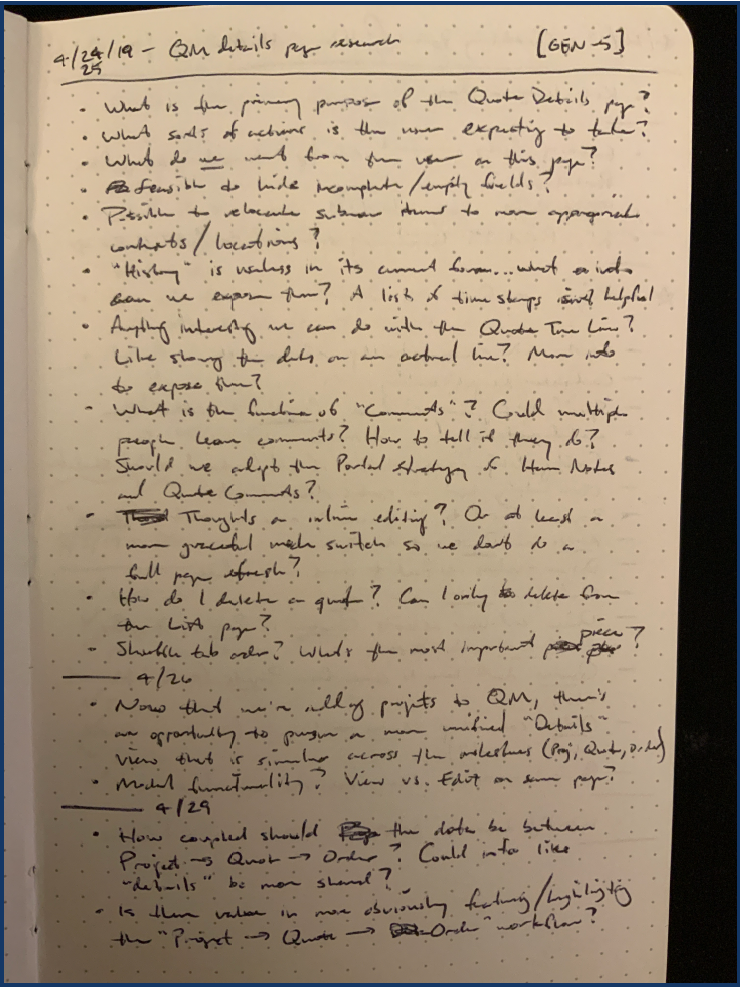 4/24/19 – QM details page research [GEN-5]
25
• What is the primary purpose of the Quote Details page?
• What sorts of actions is the user expecting to take?
• What do we want from the user on this page?
• Feasible to hide incomplete/empty fields?
• Possible to relocate subnav items to more appropriate
contexts/locations?
• "History" is useless in its current form... what info
can we expose then? A list of time stamps isn't helpful
• Anything interesting we can do with the Quote Time Line?
Like showing the dates on an actual line? More info
to expose then?
• What is the function of "Comments"? Could multiple
people leave comments? How to tell if they do?
Should we adopt the Portal strategy of Item Notes
and Quote Comments?
• Thoughts on inline editing? Or at least a
more graceful mode switch so we don't do a
full page refresh?
• How do I delete a quote? Can I only delete from
the List page?
• Shuffle tab order? What's the most important piece?
4/26
• Now that we're adding projects to QM, there's
an opportunity to pursue a more unified "Details"
view that is similar across the milestones (Proj, Quote, Order)
• Modal functionality? View vs. Edit on same page?
4/29
• How coupled should the data be between
Project → Quote → Order? Could info like
"details" be more shared?
• Is there value in more obviously featuring/highlighting
the "Project → Quote → Order" workflow?